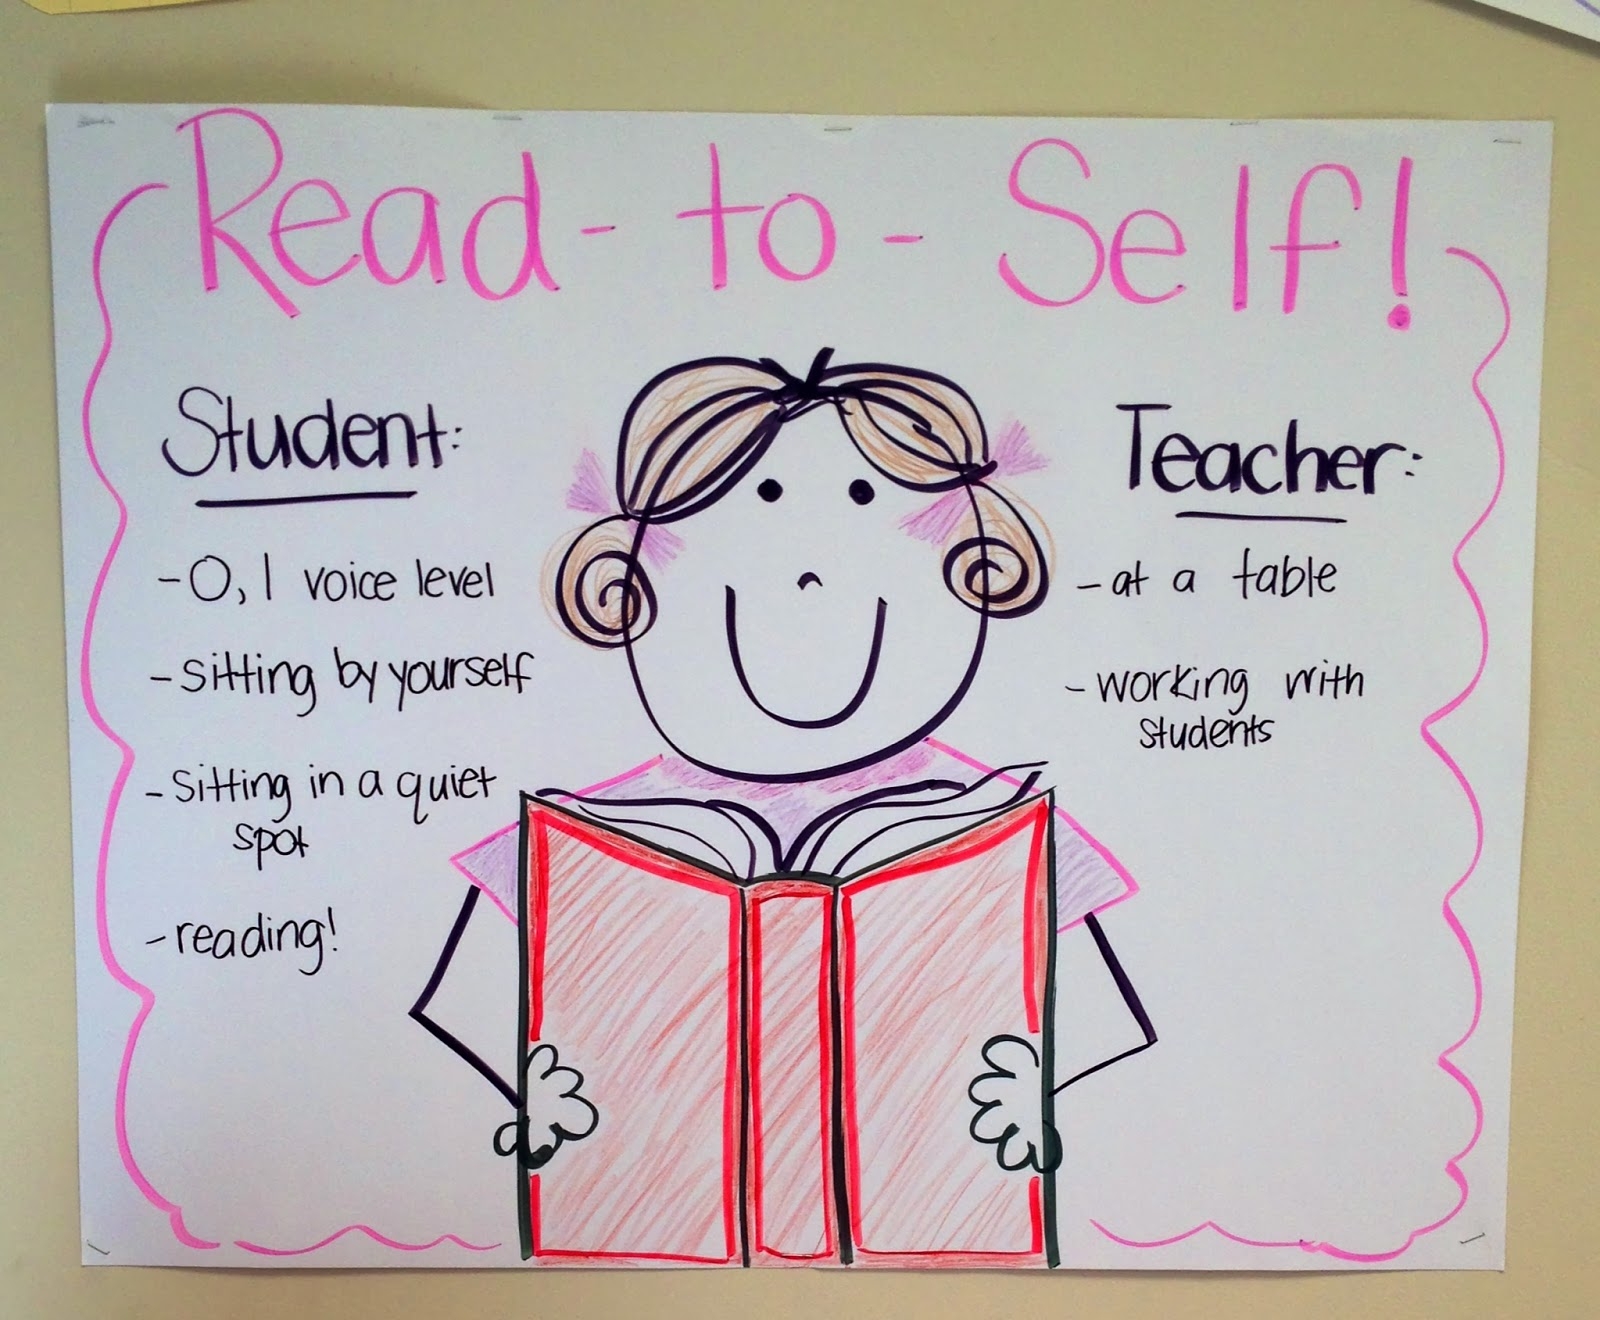 Read-to-Self!
Student:
-0,1 voice level
-sitting by yourself
-sitting in a quiet
spot
-reading!
Teacher:
-at a table
-working with
students